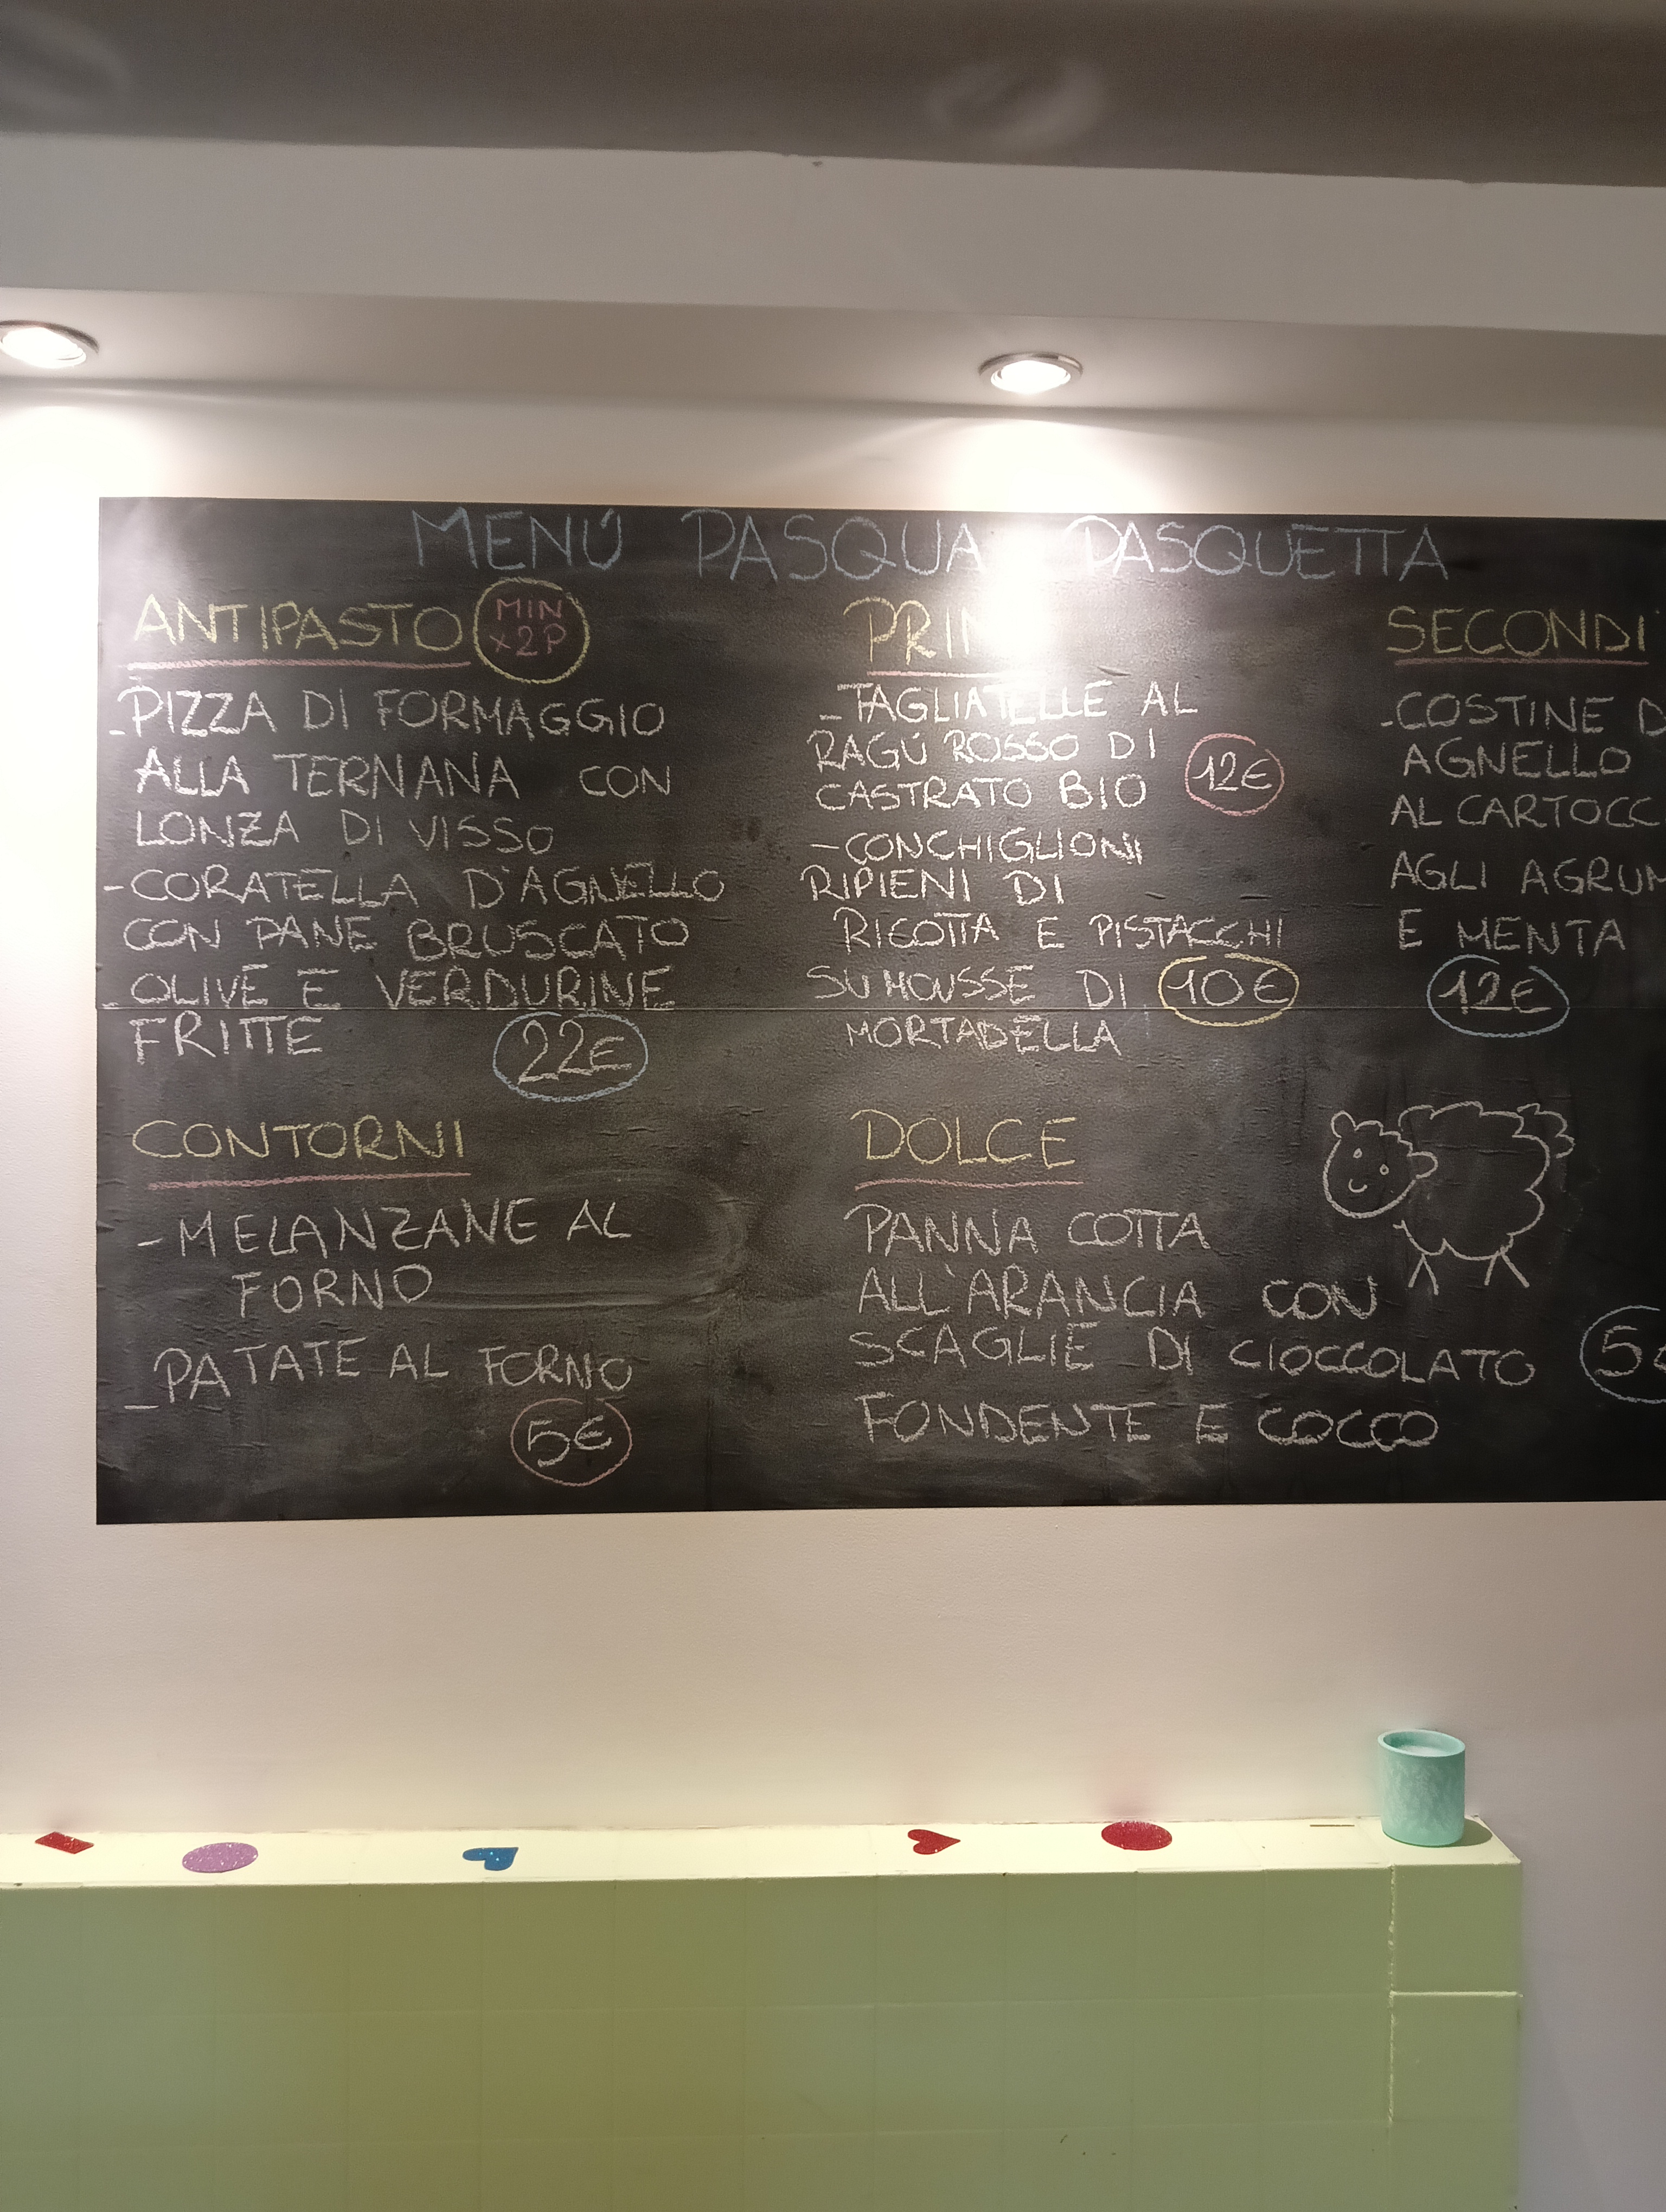 MENÚ PASQUA PASQUETTA
ANTIPASTO
MIN
x2P
-PIZZA DI FORMAGGIO
ALLA TERNANA CON
LONZA DI VISSO
-CORATELLA D'AGNELLO
CON PANE BRUSCATO
-OLIVE E VERDURINE
FRITTE 22€
PRIM
-TAGLIATELLE AL
RAGÚ ROSSO DI
CASTRATO BIO 12€
-CONCHIGLIONI
RIPIENI DI
RICOTTA E PISTACCHI
SU MOUSSE DI 10€
MORTADELLA
SECONDI
-COSTINE D
AGNELLO
AL CARTOCC
AGLI AGRUM
E MENTA
12€
CONTORNI
-MELANZANE AL
FORNO
-PATATE AL FORNO
5€
DOLCE
PANNA COTTA
ALL'ARANCIA CON
SCAGLIE DI CIOCCOLATO 5€
FONDENTE E COCCO